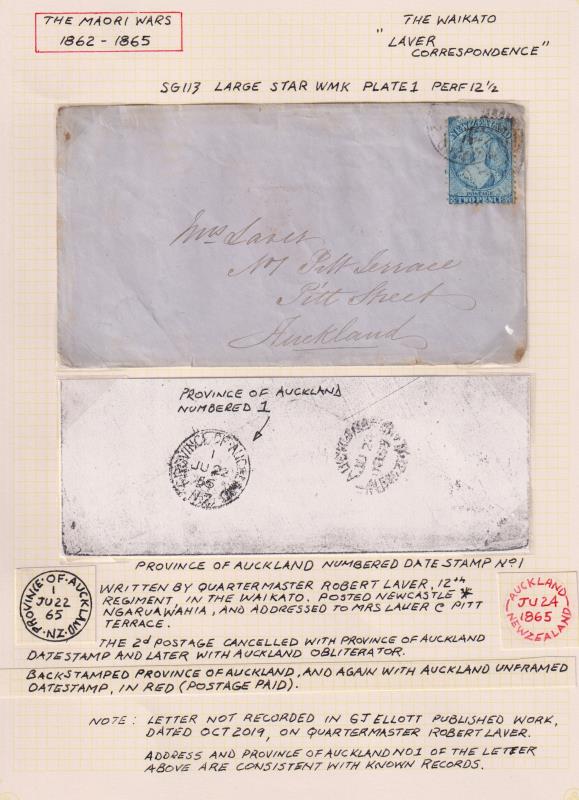 THE MAORI WARS
1862 - 1865
THE WAIKATO
"LAVER
CORRESPONDENCE"
SG113 LARGE STAR WMK PLATE 1 PERF 12½
NEW ZEALAND
POSTAGE
TWO PENCE
Mrs Laver
No 1 Pitt Terrace
Pitt Street
Auckland
PROVINCE OF AUCKLAND
NUMBERED 1
PROVINCE·OF·AUCKLAND·N.Z
1
JU 22
65
AUCKLAND
JU 2
1865
NEW ZEALAND
PROVINCE OF AUCKLAND NUMBERED DATE STAMP No 1
PROVINCE·OF·AUCKLAND·N.Z
1
JU 22
65
WRITTEN BY QUARTERMASTER ROBERT LAVER, 12TH
REGIMENT, IN THE WAIKATO. POSTED NEWCASTLE *
NGARUAWAHIA, AND ADDRESSED TO MRS LAVER C PITT
TERRACE.
AUCKLAND
JU 24
1865
NEW ZEALAND
THE 2d POSTAGE CANCELLED WITH PROVINCE OF AUCKLAND
DATESTAMP AND LATER WITH AUCKLAND OBLITERATOR.
BACKSTAMPED PROVINCE OF AUCKLAND, AND AGAIN WITH AUCKLAND UNFRAMED
DATESTAMP, IN RED (POSTAGE PAID).
NOTE: LETTER NOT RECORDED IN GJ ELLOTT PUBLISHED WORK,
DATED OCT 2019, ON QUARTERMASTER ROBERT LAVER.
ADDRESS AND PROVINCE OF AUCKLAND NO.1 OF THE LETTER
ABOVE ARE CONSISTENT WITH KNOWN RECORDS.